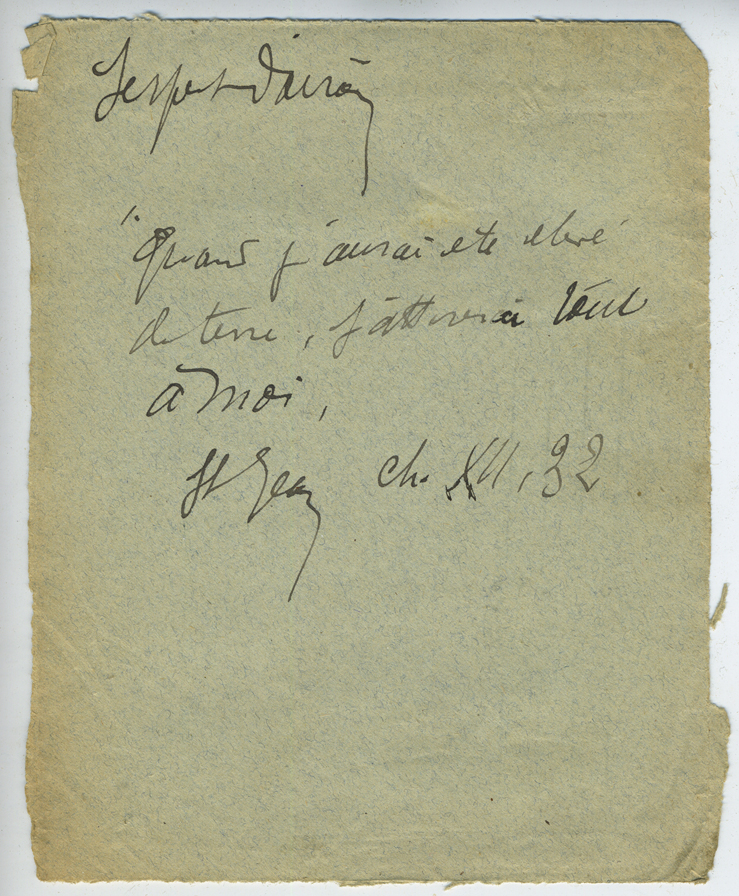 Serpent d'airain
"Quand j'aurai ete elevé
de terre, j'attirerai tout
à moi,
St Jean ch. XII, 32